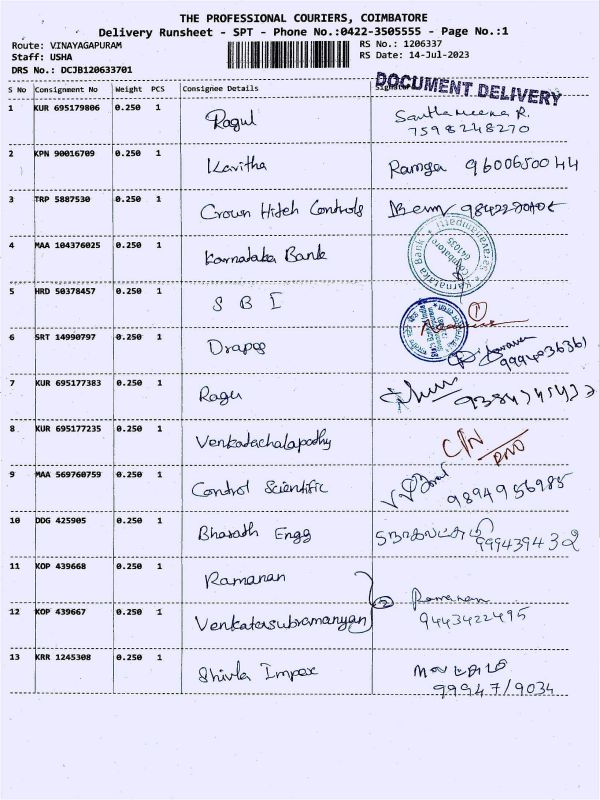 THE PROFESSIONAL COURIERS, COIMBATORE
Delivery Runsheet - SPT - Phone No.:0422-3505555 - Page No.:1
Route: VINAYAGAPURAM RS No.: 1206337
Staff: USHA RS Date: 14-Jul-2023
DRS No.: DCJB120633701
DOCUMENT DELIVERY
S No Consignment No Weight PCS Consignee Details
1 KUR 695179806 0.250 1 Ragul
7598248270
2 KPN 90016709 0.250 1 Kavitha Ramya 9600650044
3 TRP 5887530 0.250 1 Crown Hitech Controls
4 MAA 104376025 0.250 1 Karnataka Bank
Karnataka Bank
Coimbatore
641035
5 HRD 50378457 0.250 1 S B I
6 SRT 14990797 0.250 1
7 KUR 695177383 0.250 1 Ragu
8 KUR 695177235 0.250 1 Venkatachalapathy
9 MAA 569760759 0.250 1 Control Scientific 9894956985
10 DDG 425905 0.250 1 Bharath Engg 9994394432
11 KOP 439668 0.250 1 Ramanan
2 Ramanan
12 KOP 439667 0.250 1 Venkatasubramanyan 9443422495
13 KRR 1245308 0.250 1 Shivla Impex
99947/9034